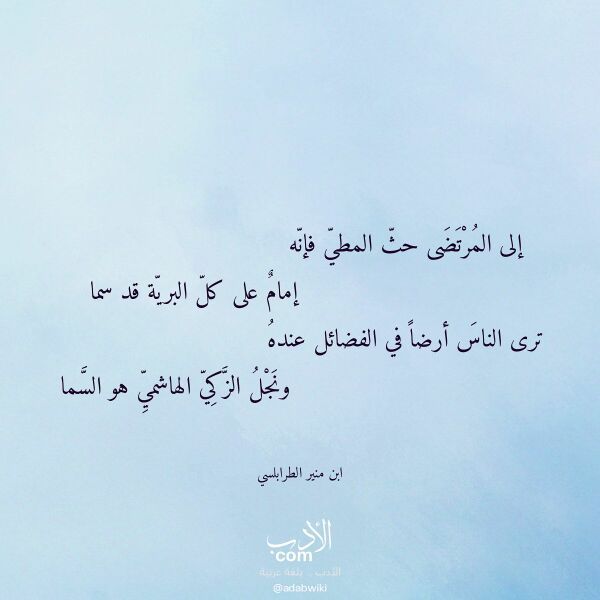 إلى المُرْتَضَى حثّ المطيّ فإنّه
إمامٌ على كلّ البريّة قد سما
ترى الناسَ أرضاً في الفضائل عندهُ
ونَجْلُ الزَّكِيّ الهاشميِّ هو السَّما
ابن منير الطرابلسي
الأدب
com
الأدب .. بلغة عربية
@adabwiki